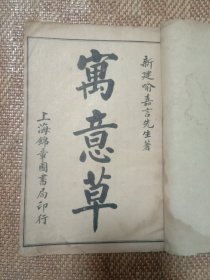 新建喻嘉言先生著
寓意草
上海錦章圖書局印行